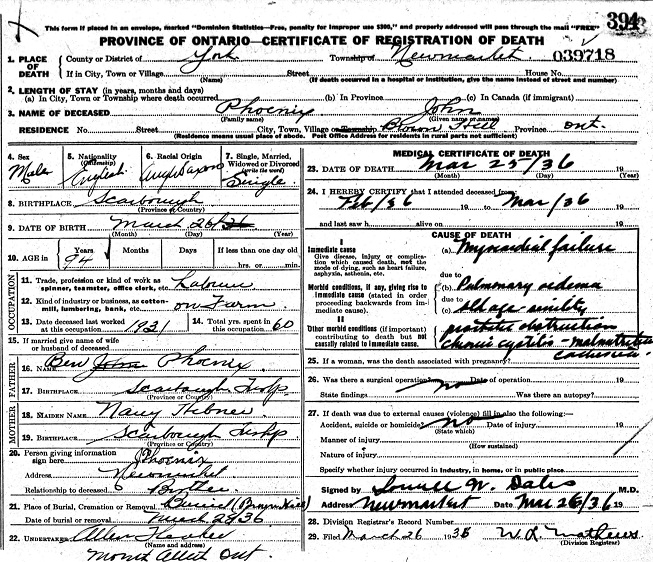 This form if placed in an envelope, marked "Dominion Statistics—Free, penalty for improper use $300," and properly addressed will pass through the mail "FREE"
394
PROVINCE OF ONTARIO—CERTIFICATE OF REGISTRATION OF DEATH
039718
1. PLACE OF DEATH
County or District of York Township of Newmarket
If in City, Town or Village (Name) Street House No.
(If death occurred in a hospital or institution, give the name instead of street and number)
2. LENGTH OF STAY (in years, months and days)
(a) In City, Town or Township where death occurred (b) In Province (c) In Canada (if immigrant)
3. NAME OF DECEASED Phoenix John
(Family name) (Given name or names)
RESIDENCE No. Street City, Town, Village or Township Hill Province Ont.
(Residence means usual place of abode. Post Office Address for residents in rural parts not sufficient)
4. Sex
Male
5. Nationality
(Citizenship)
English
6. Racial Origin
Anglo Saxon
7. Single, Married, Widowed or Divorced
(write the word)
Single
8. BIRTHPLACE Scarborough
(Province or Country)
9. DATE OF BIRTH March 26
(Month) (Day) (Year)
10. AGE in
Years
94
Months
Days
If less than one day old
hrs. or min.
OCCUPATION
11. Trade, profession or kind of work as spinner, teamster, office clerk, etc. Labourer
12. Kind of industry or business, as cotton-mill, lumbering, bank, etc. on Farm
13. Date deceased last worked at this occupation 1921
14. Total yrs. spent in this occupation 60
15. If married give name of wife or husband of deceased
FATHER
16. Name Ben John Phoenix
17. Birthplace Scarborough Twsp
(Province or Country)
MOTHER
18. Maiden Name Nancy
19. Birthplace Scarborough Twshp
(Province or Country)
20. Person giving information sign here J Phoenix
Address Newmarket
Relationship to deceased Brother
21. Place of Burial, Cremation or Removal Burial
Date of burial or removal March 29 36
22. UNDERTAKER Allen
(Name and address)
Mount Albert Ont.
MEDICAL CERTIFICATE OF DEATH
23. DATE OF DEATH Mar 25/36 19
(Month) (Day)
24. I HEREBY CERTIFY that I attended deceased from:
Feb/36 19 to Mar/36 19
and last saw h alive on 19
CAUSE OF DEATH
I
Immediate cause
Give disease, injury or complication which caused death, not the mode of dying, such as heart failure, asphyxia, asthenia, etc.
(a) Myocardial failure
due to
Morbid conditions, if any, giving rise to immediate cause (stated in order proceeding backwards from immediate).
(b) Pulmonary oedema
due to
(c) old age - senility
II
Other morbid conditions (if important) contributing to death but not causally related to immediate cause.
prostatic obstruction
chronic cystitis - malnutrition
25. If a woman, was the death associated with pregnancy?
26. Was there a surgical operation? no Date of operation 19
State findings Was there an autopsy?
27. If death was due to external causes (violence) fill in also the following:—
Accident, suicide or homicide? no Date of injury 19
(State which)
Manner of injury
(How sustained)
Nature of injury
Specify whether injury occurred in industry, in home, or in public place
Signed by W. Dales M.D.
Address Newmarket Date Mar 26/36 19
28. Division Registrar's Record Number
29. Filed March 26 1936 W. L. Mathews
(Division Registrar)